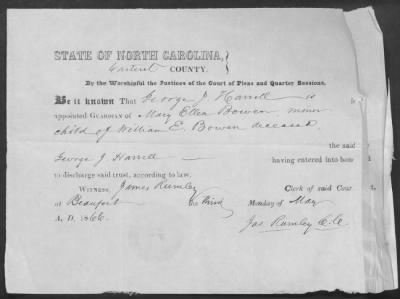 STATE OF NORTH CAROLINA,
Carteret COUNTY.
By the Worshipful the Justices of the Court of Pleas and Quarter Sessions.
Be it known That George J. Harrell is
appointed GUARDIAN OF Mary Ellen Bowen minor
child of William E. Bowen deceased.
the said
George J. Harrell having entered into bon
to discharge said trust, according to law.
WITNESS, James Rumley Clerk of said Cour
at Beaufort the Third Monday of May
A. D. 1866. Jas. Rumley C.C.